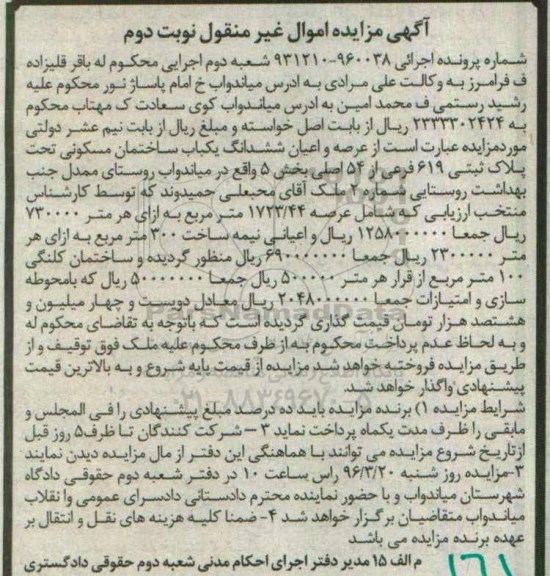 آگهی مزایده اموال غیر منقول نوبت دوم
شماره پرونده اجرائی ۹۶۰۰۳۸-۹۳۱۲۱۰ شعبه دوم اجرایی محکوم له باقر قلیزاده
ف فرامرز به وکالت علی مرادی به ادرس میاندواب خ امام پاساژ نور محکوم علیه
رشید رستمی ف محمد امین به ادرس میاندواب کوی سعادت ک مهتاب محکوم
به ۲۳۳۳۳۰۲۴۲۴ ریال از بابت اصل خواسته و مبلغ ریال از بابت نیم عشر دولتی
موردمزایده عبارت است از عرصه و اعیان ششدانگ یکباب ساختمان مسکونی تحت
پلاک ثبتی ۶۱۹ فرعی از ۵۴ اصلی بخش ۵ واقع در میاندواب روستای ممدل جنب
بهداشت روستایی شماره ۲ ملک آقای محبعلی حمیدوند که توسط کارشناس
منتخب ارزیابی که شامل عرصه ۱۷۲۳/۴۴ متر مربع به ازای هر متر ۷۳۰۰۰۰
ریال جمعا ۱۲۵۸۰۰۰۰۰۰ ریال و اعیانی نیمه ساخت ۳۰۰ متر مربع به ازای هر
متر ۲۳۰۰۰۰۰ ریال جمعا ۶۹۰۰۰۰۰۰۰ ریال منظور گردیده و ساختمان کلنگی
۱۰۰ متر مربع از قرار هر متر ۵۰۰۰۰۰ ریال جمعا ۵۰۰۰۰۰۰۰ ریال که بامحوطه
سازی و امتیازات جمعا ۲۰۴۸۰۰۰۰۰۰ ریال معادل دویست و چهار میلیون و
هشتصد هزار تومان قیمت گذاری گردیده است که باتوجه به تقاضای محکوم له
و به لحاظ عدم پرداخت محکوم به از طرف محکوم علیه ملک فوق توقیف و از
طریق مزایده فروخته خواهد شد مزایده از قیمت پایه شروع و به بالاترین قیمت
پیشنهادی واگذار خواهد شد.
شرایط مزایده ۱) برنده مزایده باید ده درصد مبلغ پیشنهادی را فی المجلس و
مابقی را ظرف مدت یکماه پرداخت نماید ۳ – شرکت کنندگان تا ظرف ۵ روز قبل
ازتاریخ شروع مزایده می توانند با هماهنگی این دفتر از مال مزایده دیدن نمایند
۳-مزایده روز شنبه ۹۶/۳/۲۰ راس ساعت ۱۰ در دفتر شعبه دوم حقوقی دادگاه
شهرستان میاندواب و با حضور نماینده محترم دادستانی دادسرای عمومی وا نقلاب
میاندواب متقاضیان برگزار خواهد شد ۴- ضمنا کلیه هزینه های نقل و انتقال بر
عهده برنده مزایده می باشد
م الف ۱۵ مدیر دفتر اجرای احکام مدنی شعبه دوم حقوقی دادگستری
۱۶۱
ParsNamadData
۰۲۱-۸۸۳۴۹۶۷۰-۵